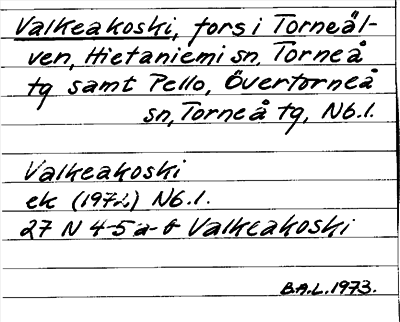 Valkeakoski, fors i Torneäl-
ven, Hietaniemi sn, Torneå
tg samt Pello, Övertorneå
sn, Torneå tg, Nb.l.
Valkeakoski
ek (1972) Nb.l.
27 N 4-5 a-b Valkeakoski
B.A.L. 1973.